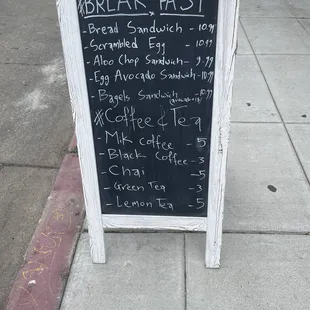 BREAK FAST
Bread Sandwich - 10.99
Scrambled Egg - 10.99
Aloo Chop Sandwich - 9.99
Egg Avocado Sandwich - 10.99
Bagels Sandwich - 10.99
#Coffee & Tea
Milk coffee - 5
Black Coffee - 3
Chai - 5
Green Tea - 3
Lemon Tea - 5